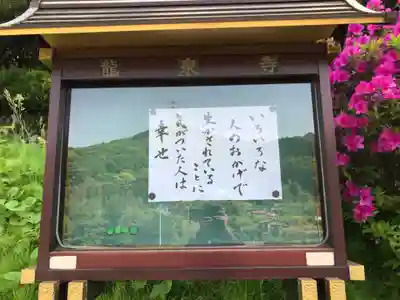 龍泉寺
いろいろな
人のおかげで
生かされている
ことに
気がついた人は
幸せ